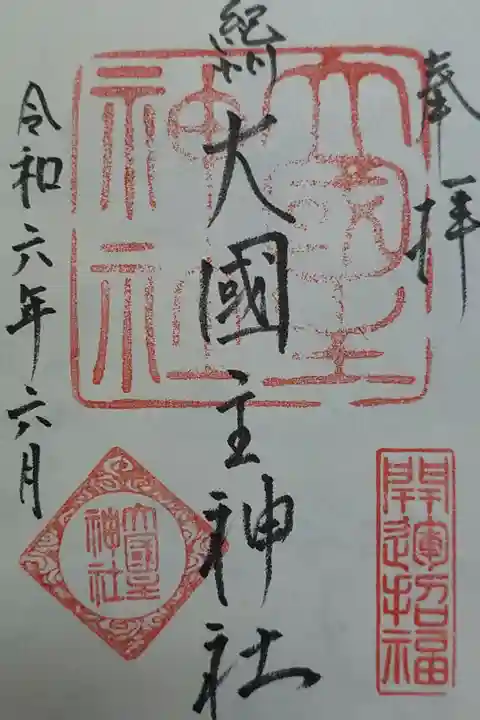 奉拝
紀州
大國主神社
令和六年六月
大國主
神社
開運招福
大國主
神社